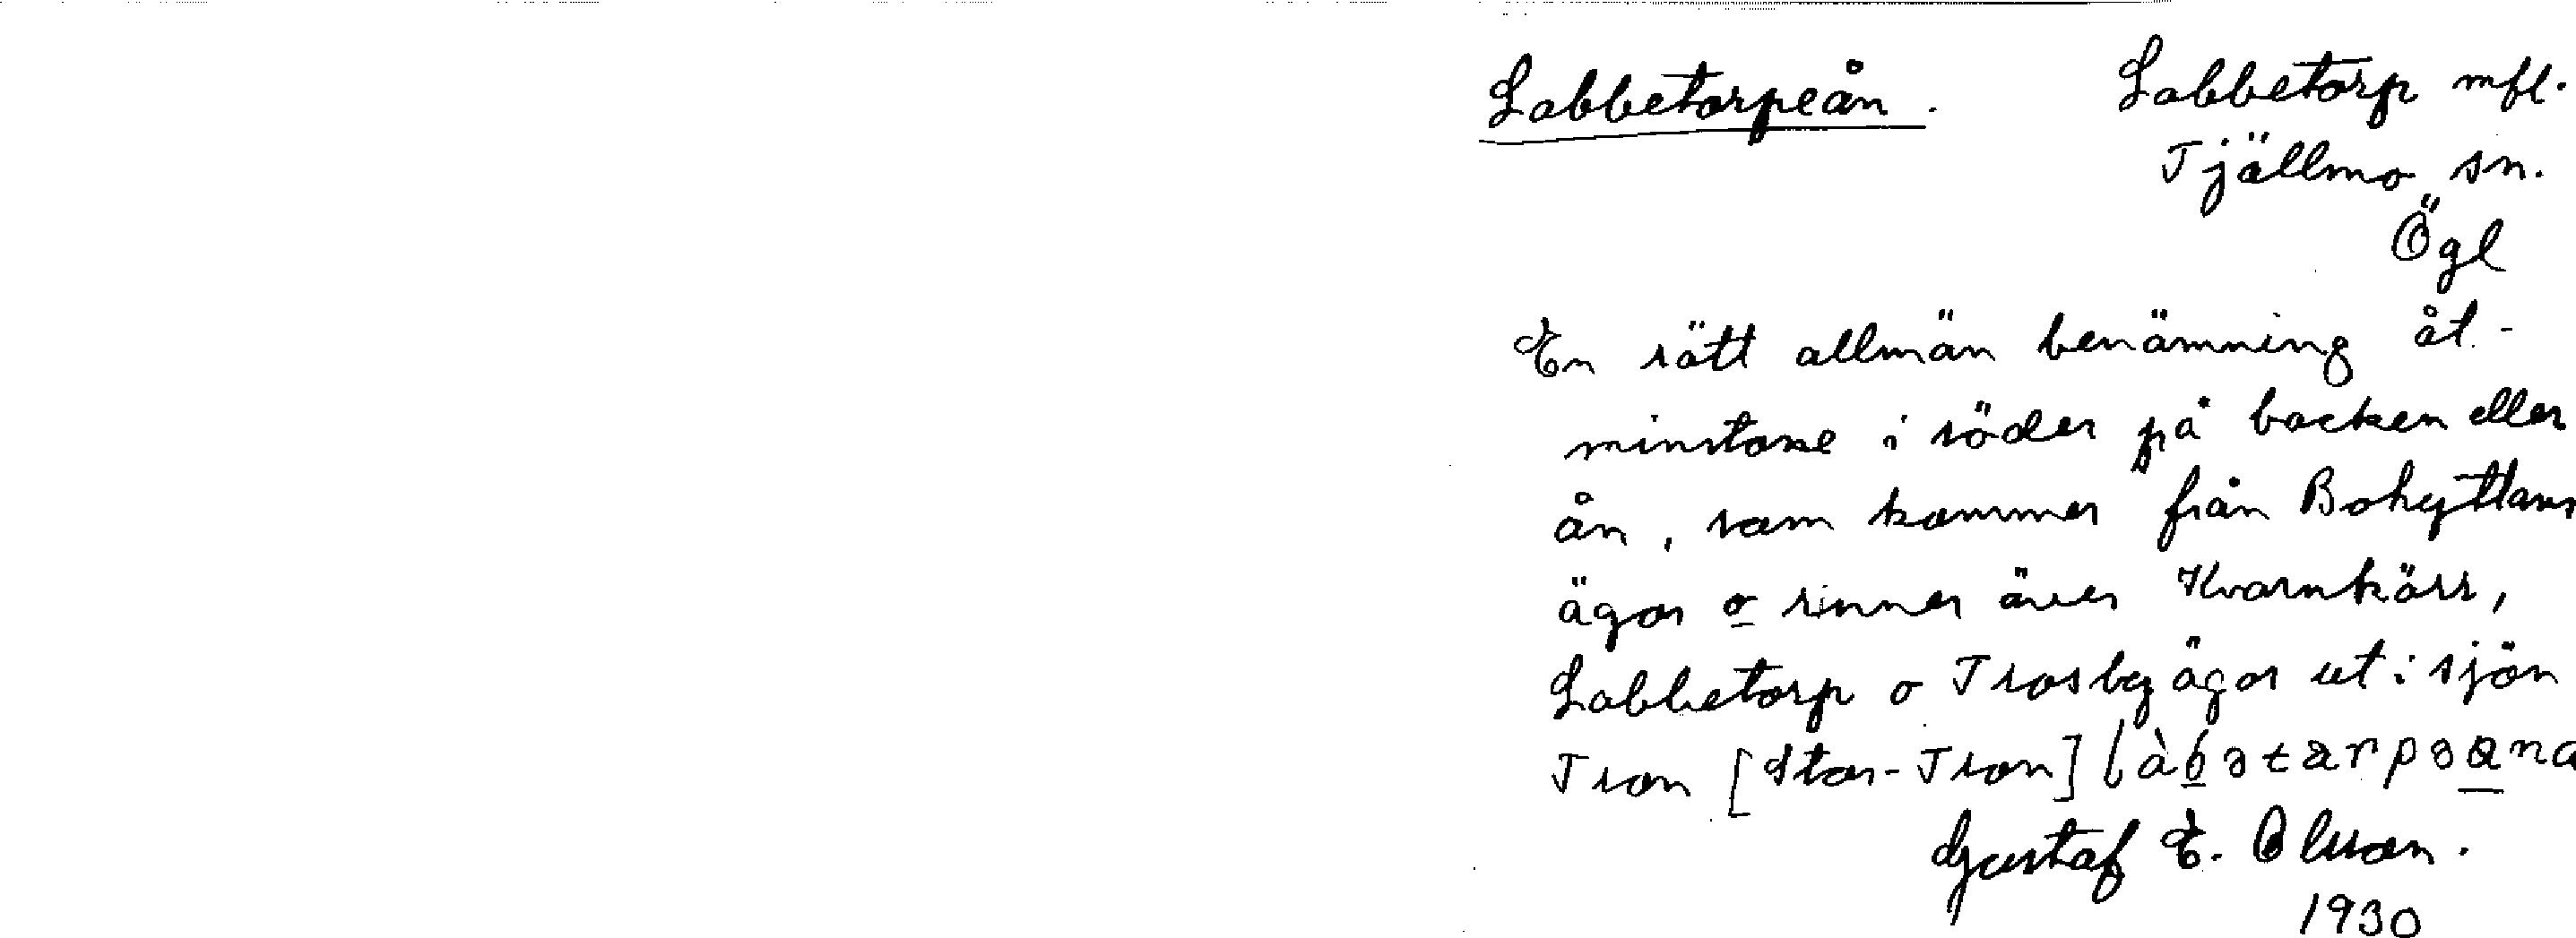 Labbetorpeån. Labbetorp mfl.
Tjällmo sn.
Ögl
En rätt allmän benämning åt-
minstone i söder på backen eller
ån, som kommer från Bohyttans
ägor o rinner över Kvarnkärr,
Labbetorp o Trosby ägor ut i sjön
Tron [Stor-Tron]
Gustaf E. Olsson.
1930